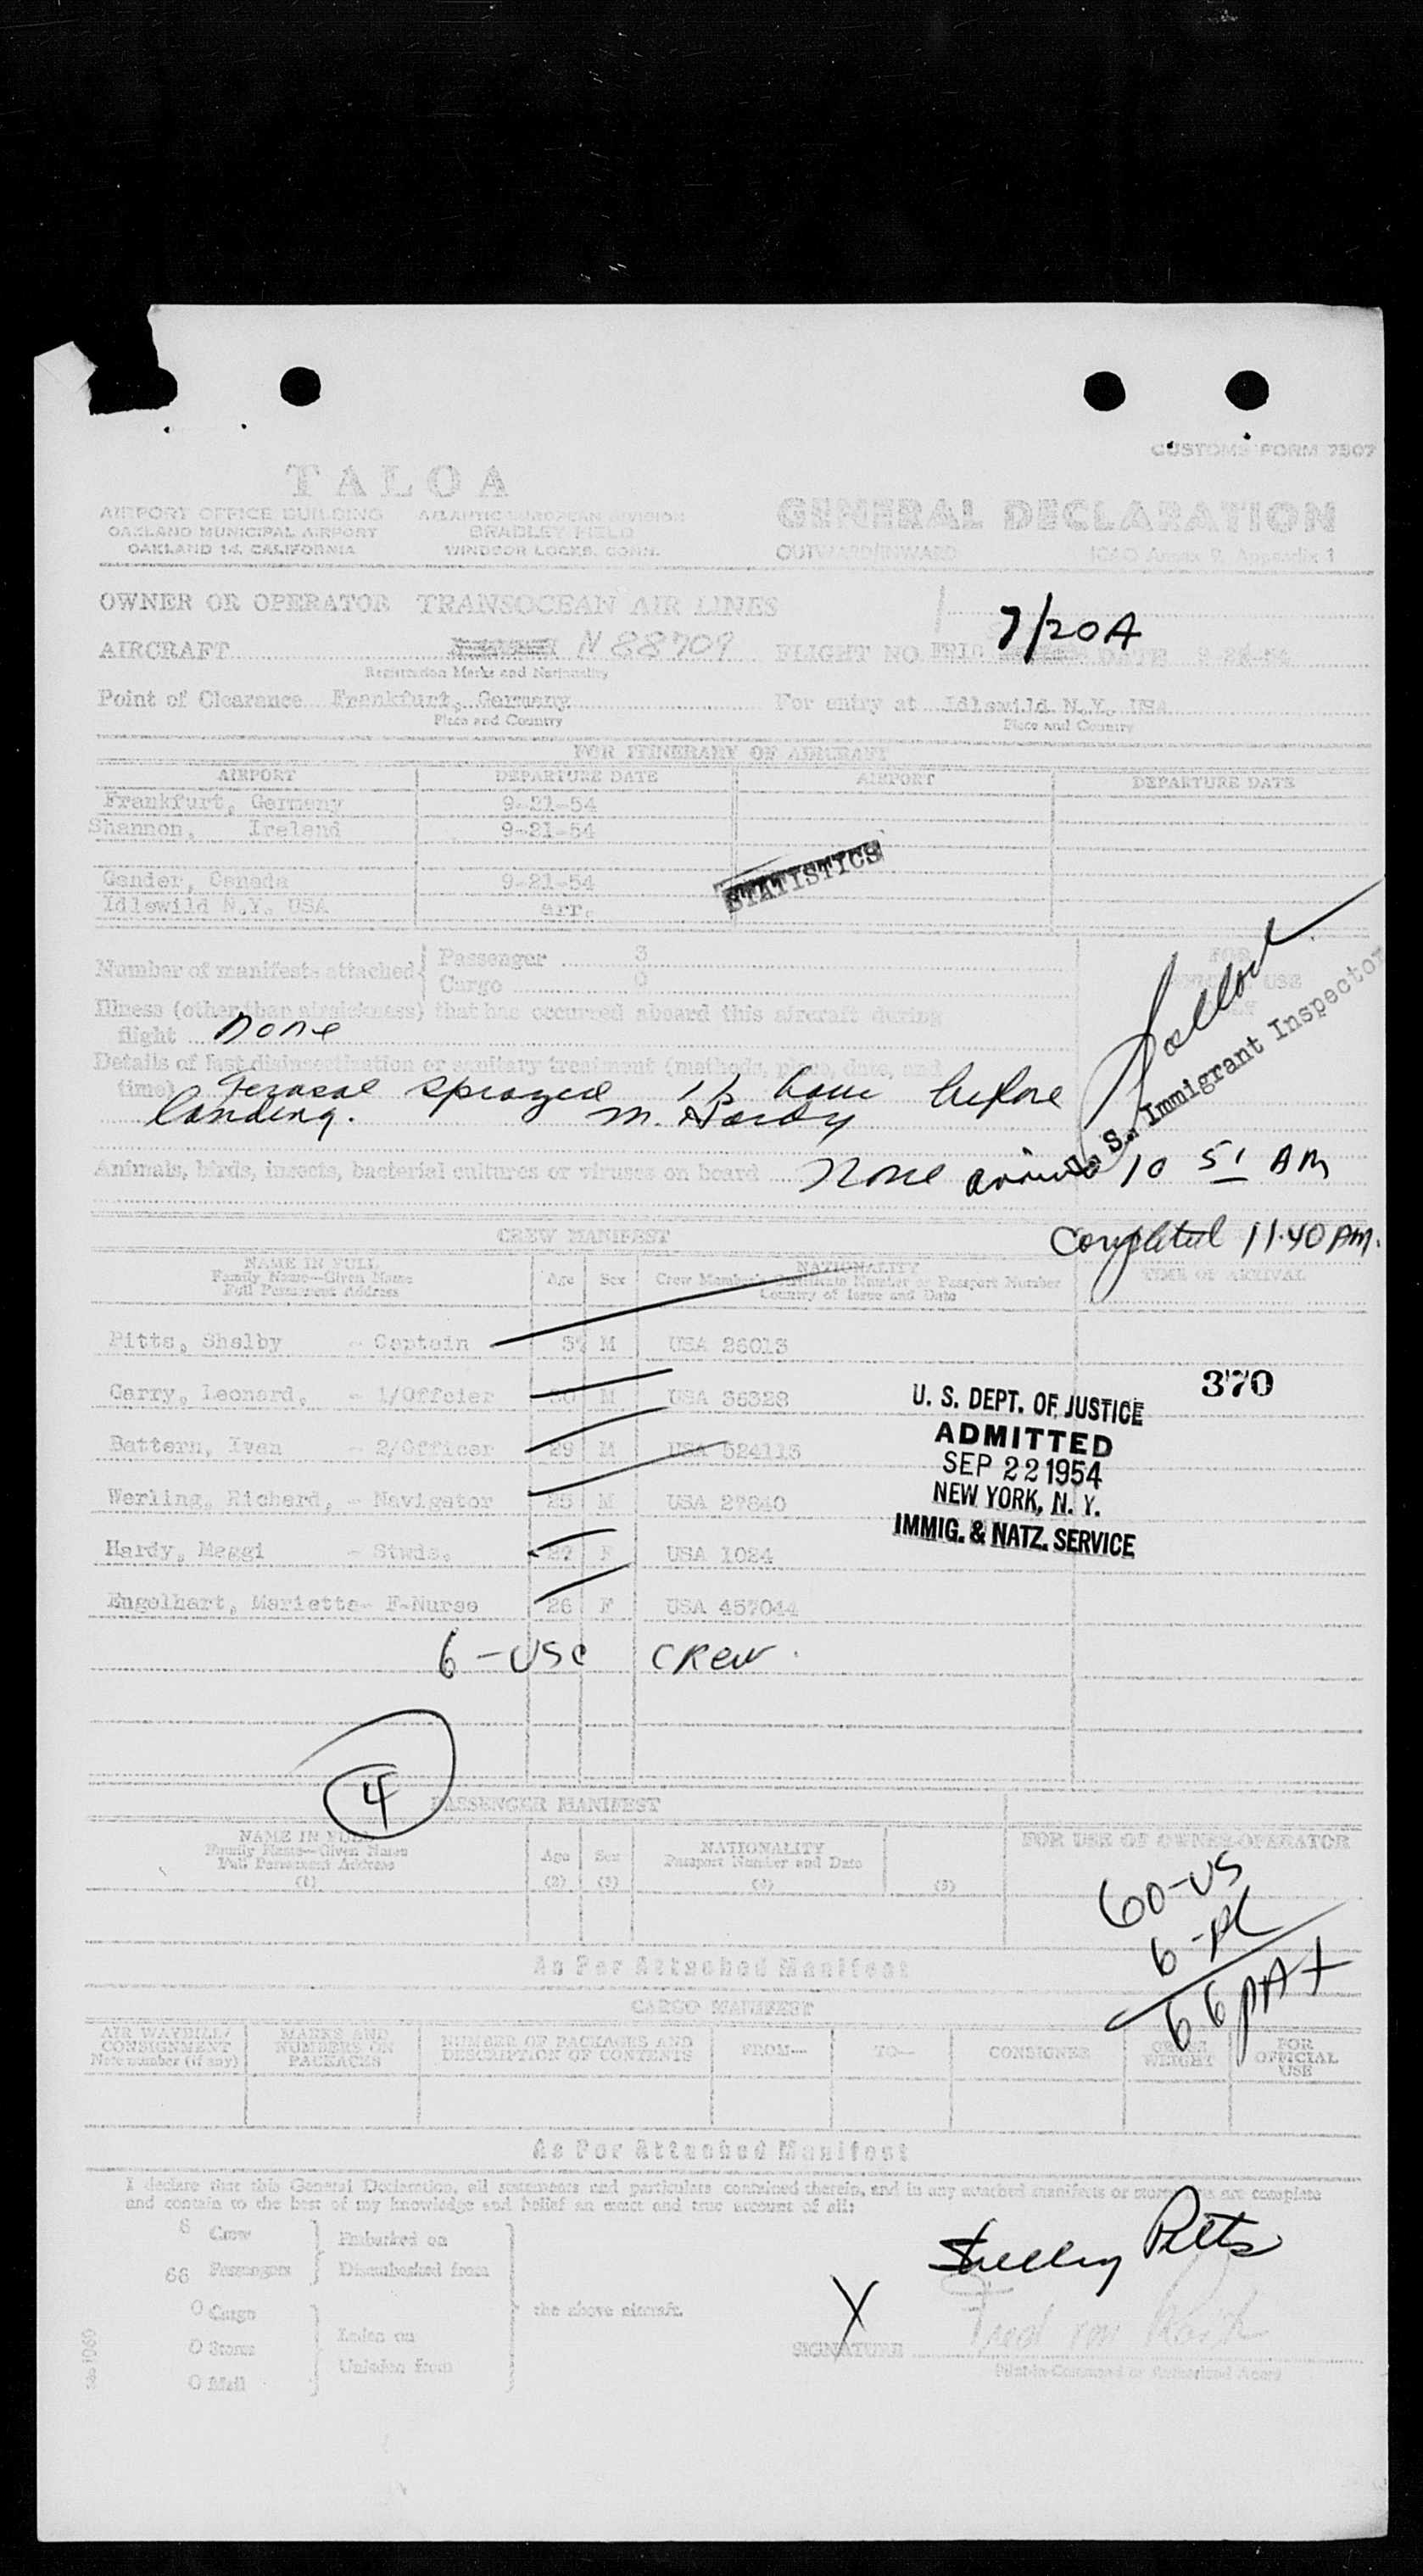 CUSTOMS FORM 7507
TALOA
AIRPORT OFFICE BUILDING
OAKLAND MUNICIPAL AIRPORT
OAKLAND 14, CALIFORNIA
ATLANTIC EUROPEAN DIVISION
BRADLEY FIELD
WINDSOR LOCKS, CONN.
GENERAL DECLARATION
OUTWARD/INWARD ICAO Annex 9, Appendix 1
OWNER OR OPERATOR TRANSOCEAN AIR LINES
7/20A
AIRCRAFT N 88709 FLIGHT NO DATE
Registration Marks and Nationality
Point of Clearance Frankfurt, Germany For entry at Idlewild N.Y. USA
Place and Country Place and Country
FOR ITINERARY OF AIRCRAFT
AIRPORT DEPARTURE DATE AIRPORT DEPARTURE DATE
Frankfurt, Germany 9-21-54
Shannon, Ireland 9-21-54
Gander, Canada 9-21-54
Idlewild N.Y. USA arr.
STATISTICS
Number of manifests attached Passenger 3
Cargo 0
FOR OFFICIAL USE ONLY
Illness (other than airsickness) that has occurred aboard this aircraft during
flight none
Details of last disinsectization or sanitary treatment (methods, place, date, and
time) sprayed hour before
landing. M. Hardy
U. S. Immigrant Inspector
Animals, birds, insects, bacterial cultures or viruses on board None 10 51 AM
Completed 11.40 AM.
CREW MANIFEST
NAME IN FULL
Family Name—Given Name
Full Permanent Address
Age Sex
NATIONALITY
Crew Member's Certificate Number or Passport Number
Country of Issue and Date
TIME OF ARRIVAL
Pitts, Shelby - Captain M USA 26013
370
Garry, Leonard, - 1/Offcier M USA 36328
Battern, Ivan - 2/Officer 29 M USA 524113
Werling, Richard, - Navigator M USA 27840
Hardy, Meggi - Stwds. 27 F USA 1024
Engelhart, Marietta- F-Nurse 26 F USA 457044
U. S. DEPT. OF JUSTICE
ADMITTED
SEP 22 1954
NEW YORK, N. Y.
IMMIG. & NATZ. SERVICE
6 - USC CREW
4
PASSENGER MANIFEST
NAME IN FULL
Family Name—Given Name
Full Permanent Address
(1)
Age
(2)
Sex
(3)
NATIONALITY
Passport Number and Date
(4)
(5)
FOR USE OF OWNER-OPERATOR
60-US
66
As Per Attached Manifest
CARGO MANIFEST
AIR WAYBILL/
CONSIGNMENT
Note number (if any)
MARKS AND
NUMBERS ON
PACKAGES
NUMBER OF PACKAGES AND
DESCRIPTION OF CONTENTS
FROM— TO— CONSIGNEE
GROSS
WEIGHT
FOR
OFFICIAL
USE
As Per Attached Manifest
I declare that this General Declaration, all statements and particulars contained therein, and in any attached manifests or are complete
and contain to the best of my knowledge and belief an exact and true account of all:
6 Crew Embarked on
66 Passengers Disembarked from
the above aircraft.
0 Cargo
0 Stores Laden on
0 Mail Unladen from
Shelby Pitts
X
SIGNATURE
Pilot-in-Command or Authorized Agent